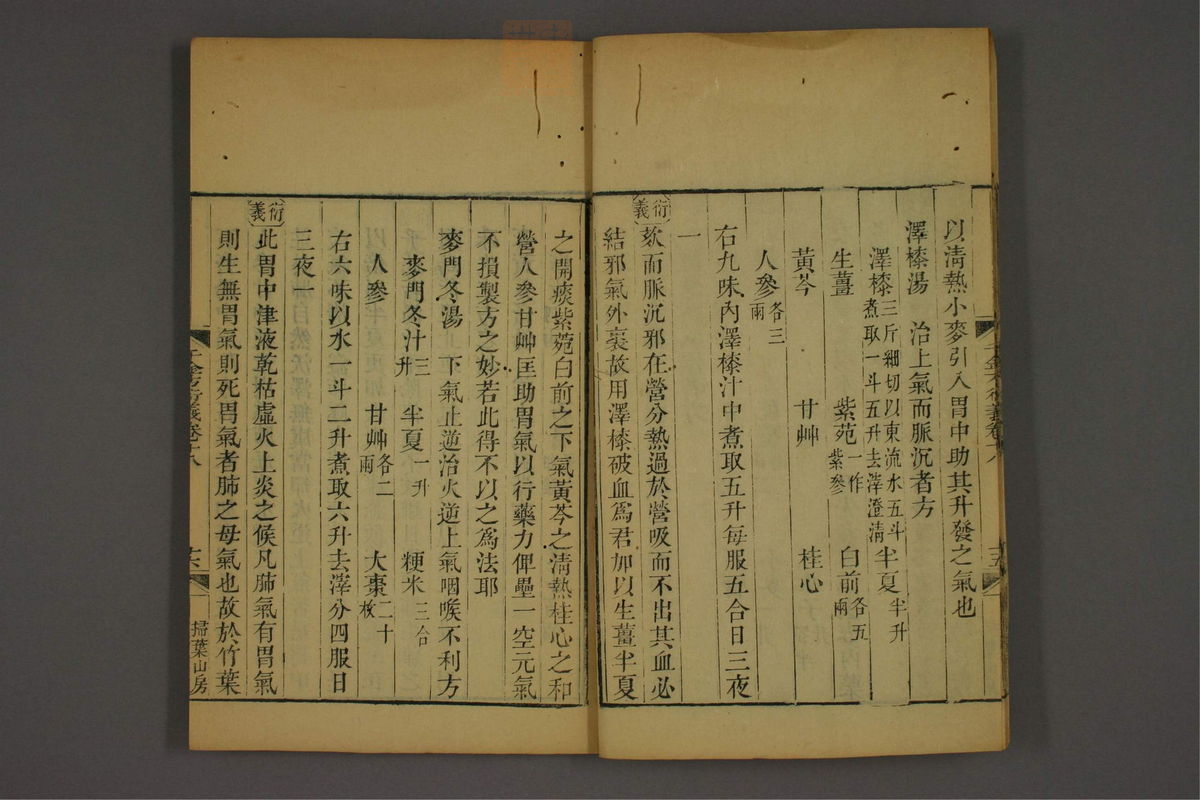 以清熱小麥引入胃中助其升發之氣也
澤漆湯 治上氣而脈沉者方
澤漆三斤細切以東流水五斗煮取一斗五升去滓澄清 半夏半升
生薑 紫菀一作紫參 白前各五兩
黃芩 甘艸 桂心
人參各三兩
右九味內澤漆汁中煮取五升每服五合日三夜
一
衍義
欬而脈沉邪在營分熱過於營吸而不出其血必
結邪氣外裹故用澤漆破血為君加以生薑半夏
十五
之開痰紫菀白前之下氣黃芩之清熱桂心之和
營人參甘艸匡助胃氣以行藥力俾壘一空元氣
不損製方之妙若此得不以之為法耶
麥門冬湯 下氣止逆治火逆上氣咽喉不利方
麥門冬汁三升 半夏一升 粳米三合
人參 甘艸各二兩 大棗二十枚
右六味以水一斗二升煮取六升去滓分四服日
三夜一
衍義
此胃中津液乾枯虛火上炎之候凡肺氣有胃氣
則生無胃氣則死胃氣者肺之母氣也故於竹葉
千金方衍義卷十八
十六
掃葉山房